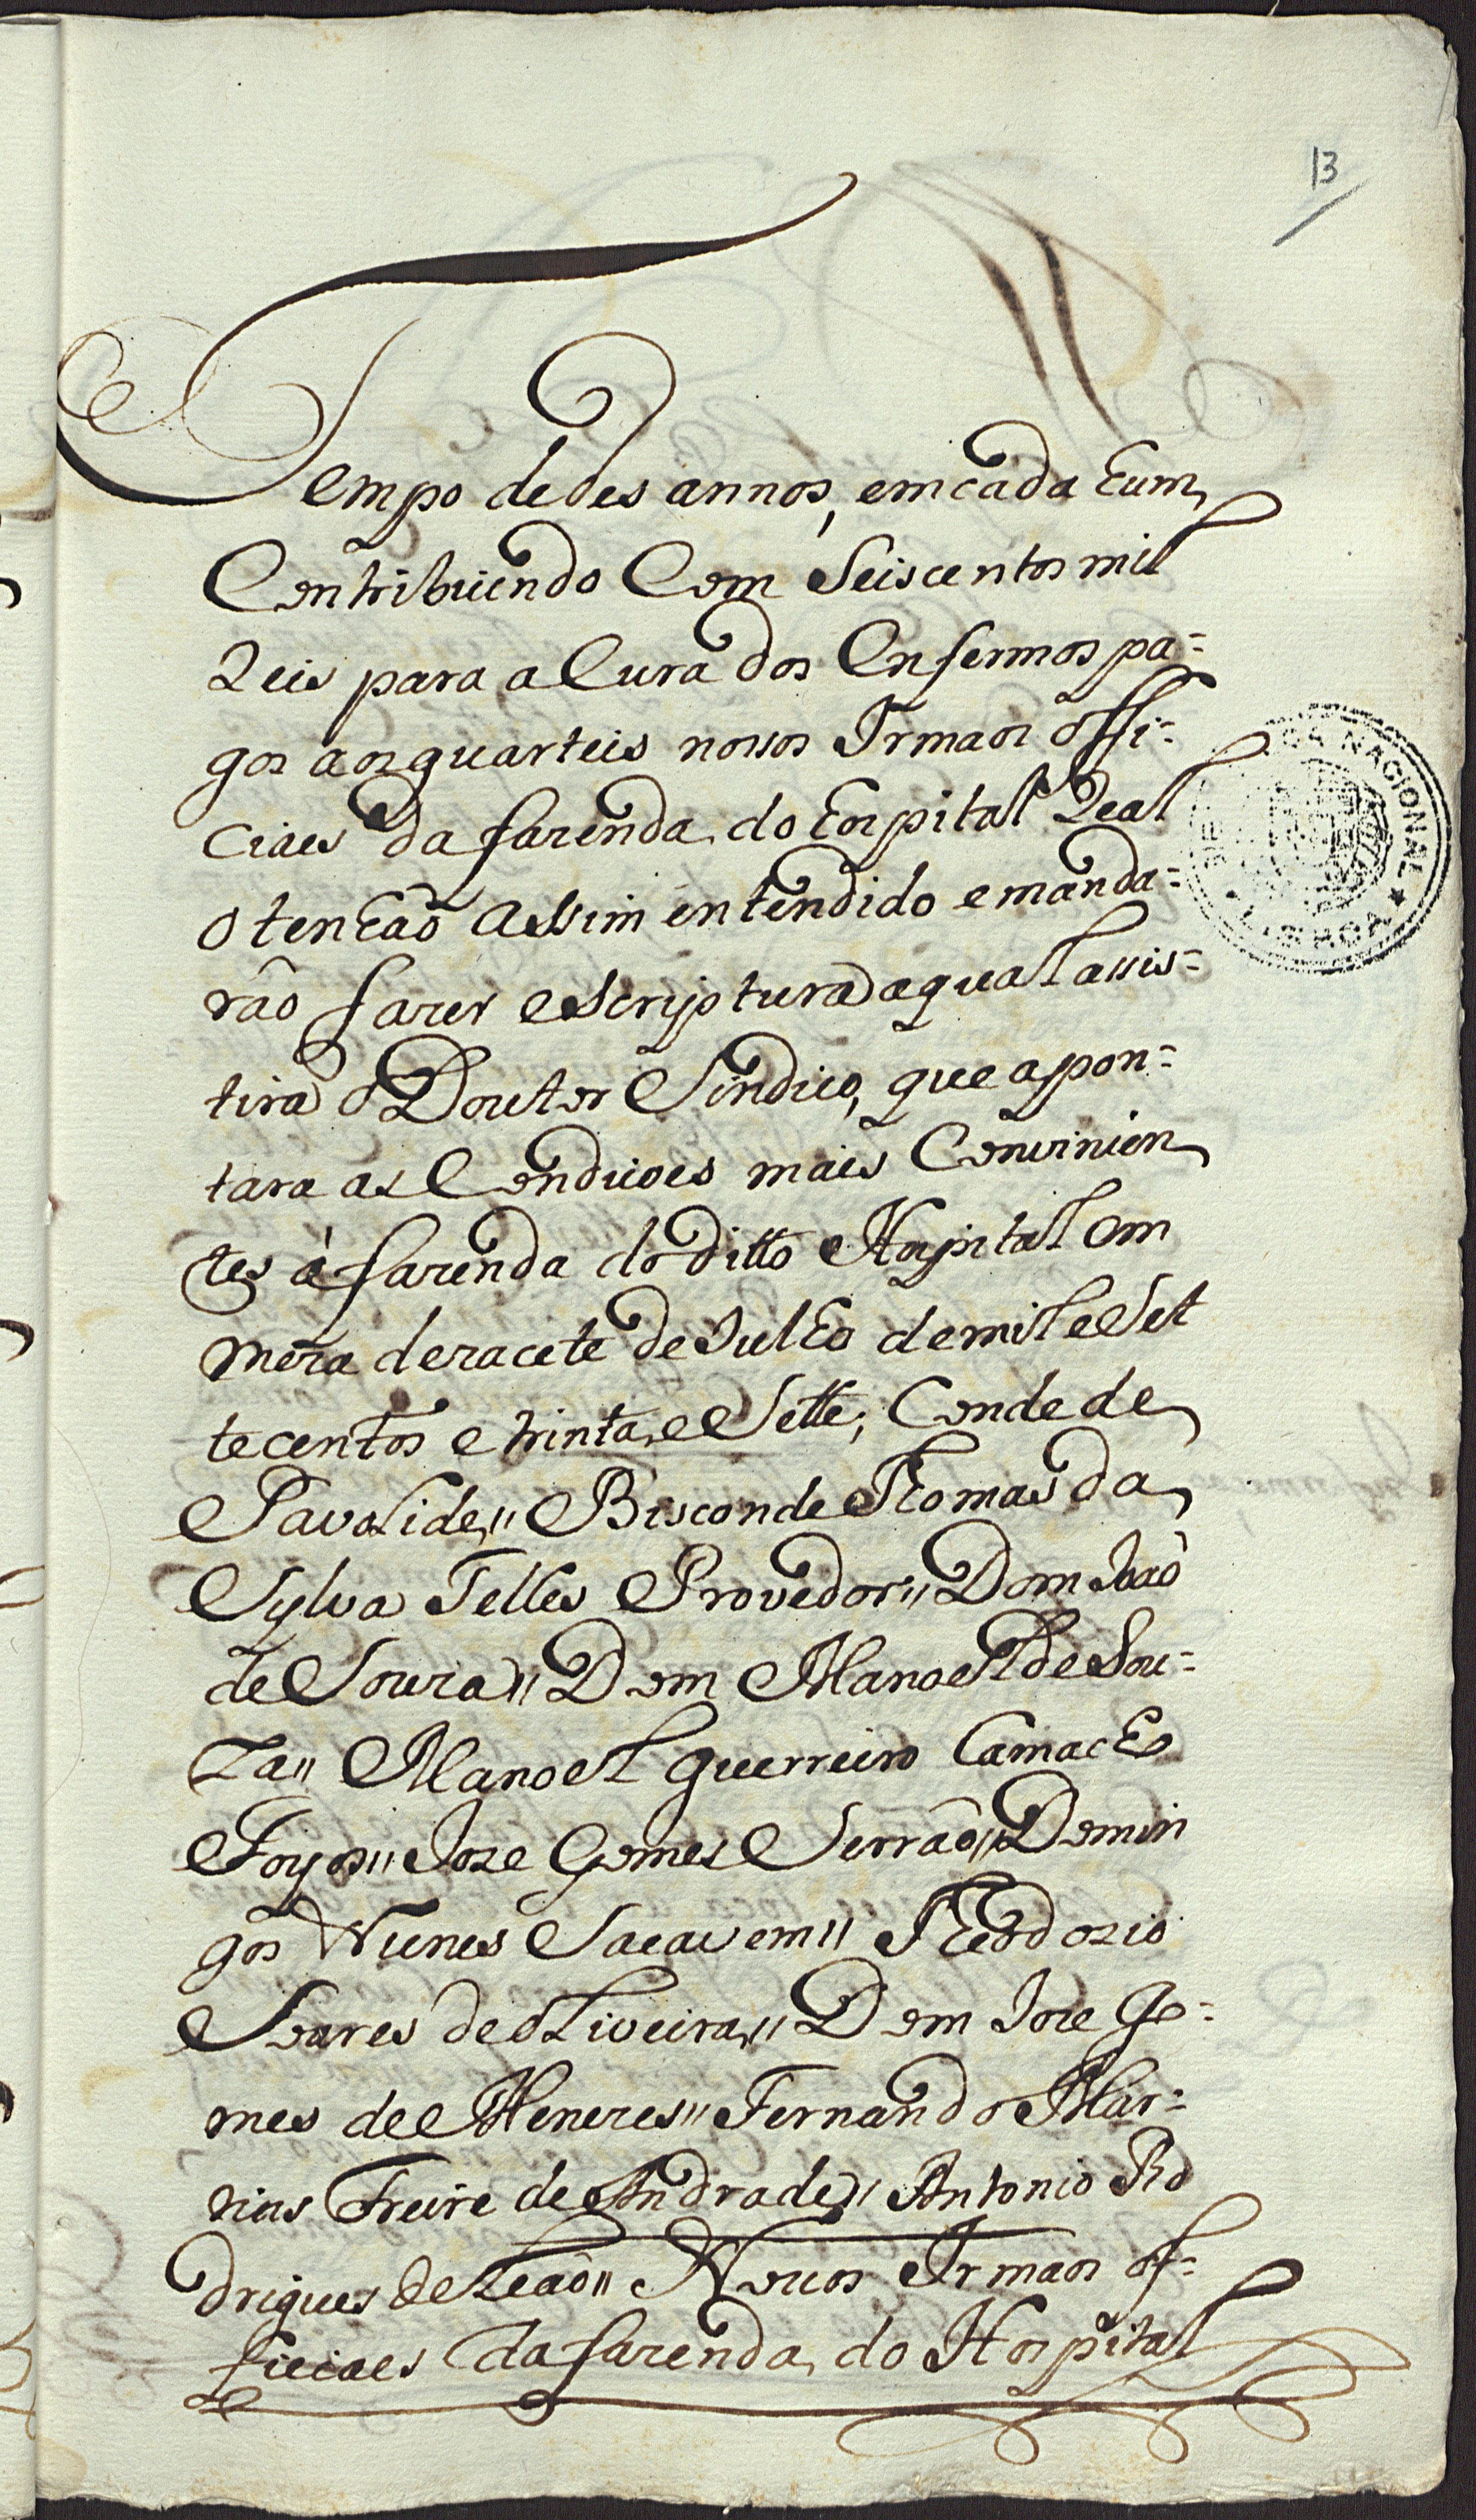 13
Tempo de des annos, em cada hum
Contribuindo Com Seiscentos mil
Reis para a Cura dos Enfermos pa=
gos aos quarteis nossos Irmaos offi=
ciaes da fazenda do Hospital Real
o tenhaõ assim entendido e manda=
raõ fazer escriptura aqual assis=
tira o Doutor Sindico, que apon=
tara as Condiçoes mais Convinien
tes á fazenda do ditto Hospital em
meza dezacete de Julho de mil e Set
tecentos e trinta e Sette; Conde de
Pavolide,, Bisconde Thomas da
Sylva Telles Provedor,, Dom Joaõ
de Souza,, Dom Manoel de Sou=
za,, Manoel guerreiro Camacho
Foyos,, Joze Gomes Serraõ,, Domin
gos Nunes Sacavem,, Theodozio
Soares de oLiveira,, Dom Joze Go=
mes de Menezes,, Fernando Mar=
tins Freire de Andrade,, Antonio Ro
drigues de Leaõ,, Nossos Irmaos of=
ficiaes da fazenda do Hospital
BIBLIOTECA NACIONAL
LISBOA